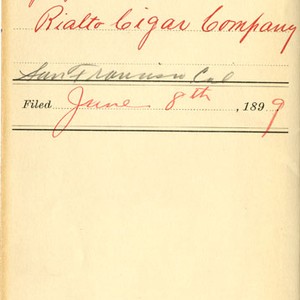 Rialto Cigar Company
San Francisco Cal
Filed June 8th, 1899